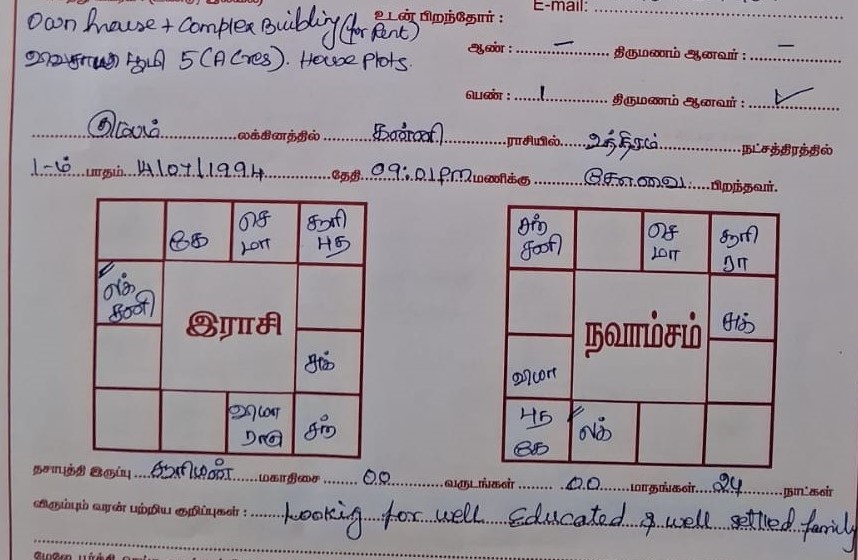 உடன் பிறந்தோர் : E-mail:
Own house + Complex Building (for Rent)
ஆண் : – திருமணம் ஆனவர் : –
பூமி 5 (Acres). House Plots.
பெண் : 1 திருமணம் ஆனவர் : ✓
கும்பம் லக்கினத்தில் கன்னி ராசியில் உத்திரம் நட்சத்திரத்தில்
1-ம் பாதம் 14/07/1994 தேதி 09:01 PM மணிக்கு பிறந்தவர்.
கே செ மா சூரி புத
லக் சனி
இராசி
சுக்
வியா ராகு சந்
சந் சனி செ மா சூரி ரா
சுக்
நவாம்சம்
வியா
புத கே லக்
தசாபுத்தி இருப்பு சூரியன் மகாதிசை 00 வருடங்கள் 00 மாதங்கள் 24 நாட்கள்
விரும்பும் வரன் பற்றிய குறிப்புகள் : Looking for well Educated & well settled family